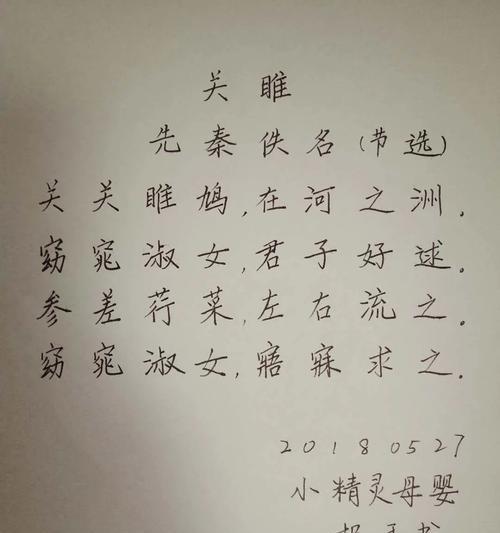 关睢
先秦佚名(节选)
关关睢鸠,在河之洲.
窈窕淑女,君子好逑.
参差荇菜,左右流之.
窈窕淑女,寤寐求之.
20180527
小精灵母婴